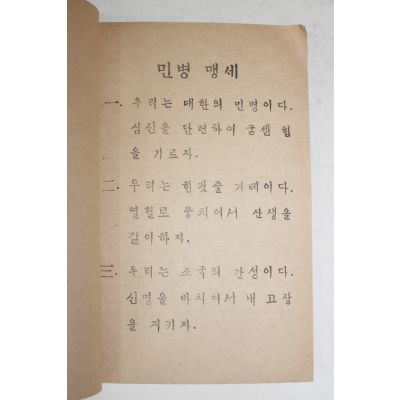 민병 맹세
一. 우리는 대한의 민병이다.
심신을 단련하여 굳센 힘
을 기르자.
二. 우리는 한핏줄 겨레이다.
열혈로 뭉치어서 산생을
같이하자.
三. 우리는 조국의 간성이다.
신명을 바치어서 내 고장
을 지키자.